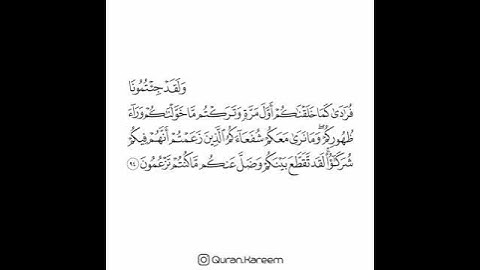 وَلَقَدۡ جِئۡتُمُونَا
فُرَٰدَىٰ كَمَا خَلَقۡنَٰكُمۡ أَوَّلَ مَرَّةٖ وَتَرَكۡتُم مَّا خَوَّلۡنَٰكُمۡ وَرَآءَ
ظُهُورِكُمۡۖ وَمَا نَرَىٰ مَعَكُمۡ شُفَعَآءَكُمُ ٱلَّذِينَ زَعَمۡتُمۡ أَنَّهُمۡ فِيكُمۡ
شُرَكَٰٓؤُاْۚ لَقَد تَّقَطَّعَ بَيۡنَكُمۡ وَضَلَّ عَنكُم مَّا كُنتُمۡ تَزۡعُمُونَ ٩٤
Quran.Kareem